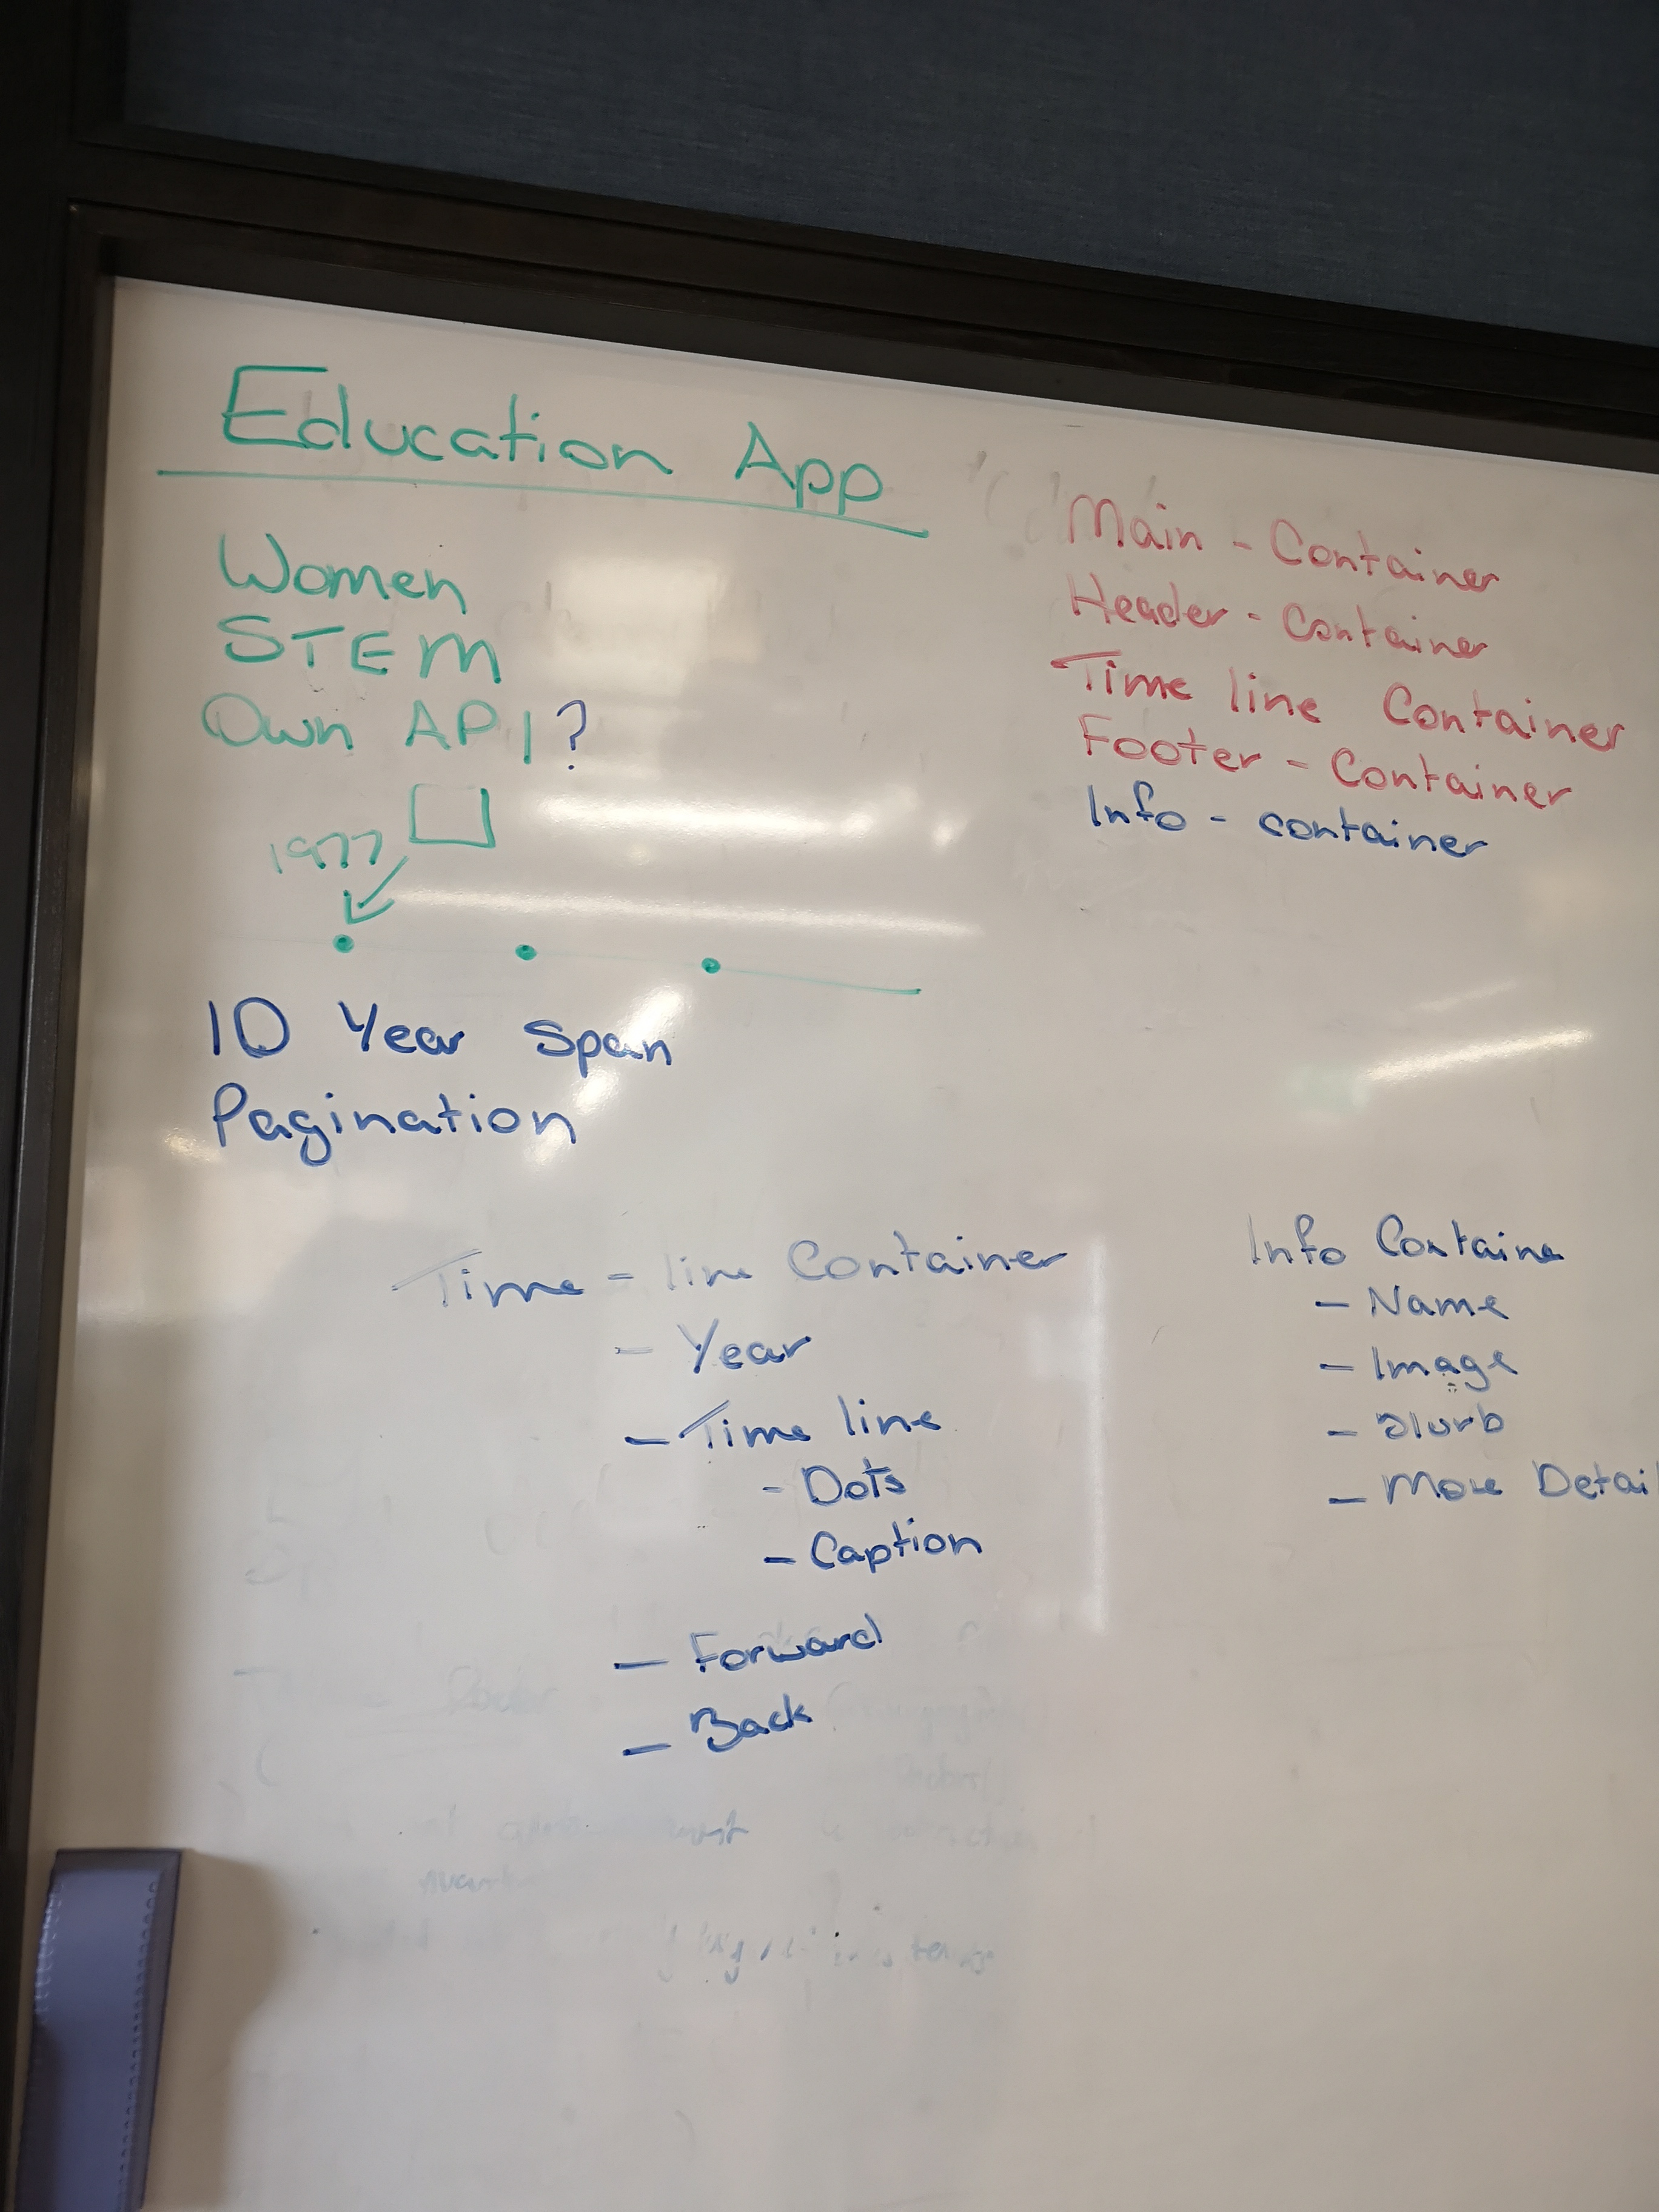 Education App
Women
STEM
Own API?
1977
10 Year Span
Pagination
Main - Container
Header - Container
Time line Container
Footer - Container
Info - container
Time - line Container
- Year
- Time line
- Dots
- Caption
- Forward
- Back
Info Container
- Name
- Image
- Blurb
- More Detai